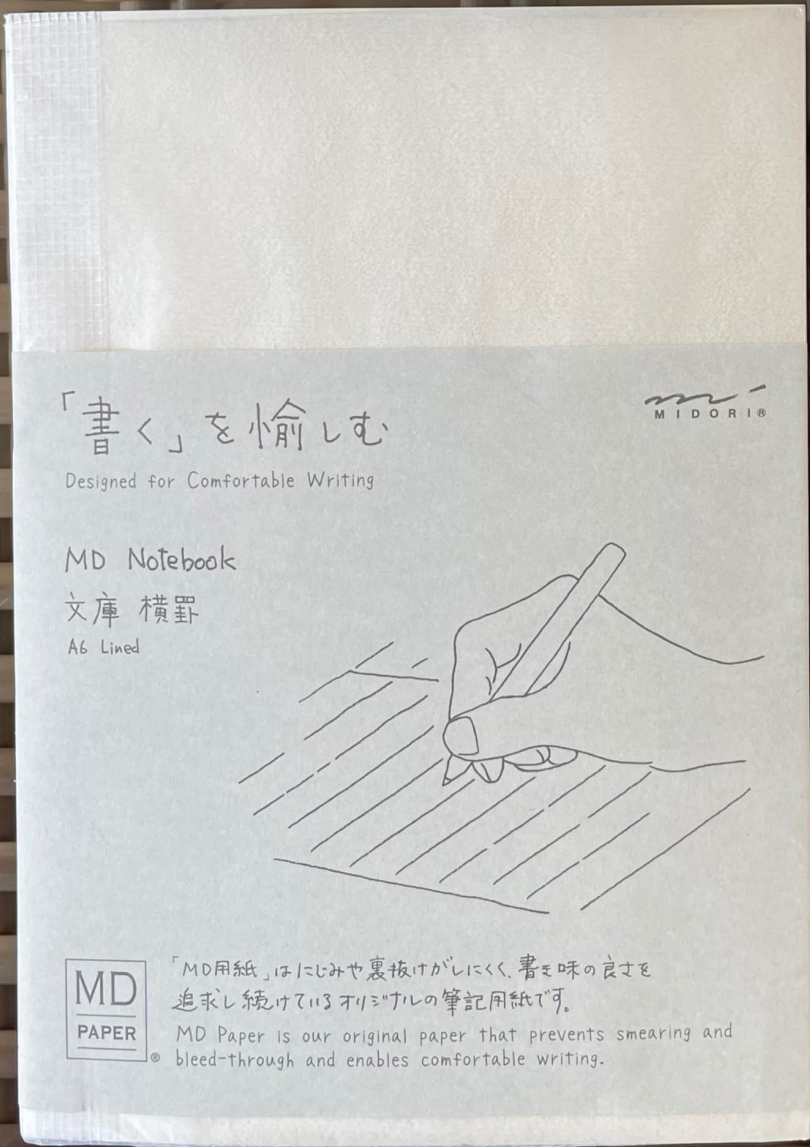 「書く」を愉しむ
Designed for Comfortable Writing
MIDORI®
MD Notebook
文庫 横罫
A6 Lined
MD
PAPER
®
「MD用紙」はにじみや裏抜けがしにくく、書き味の良さを
追求し続けているオリジナルの筆記用紙です。
MD Paper is our original paper that prevents smearing and
bleed-through and enables comfortable writing.